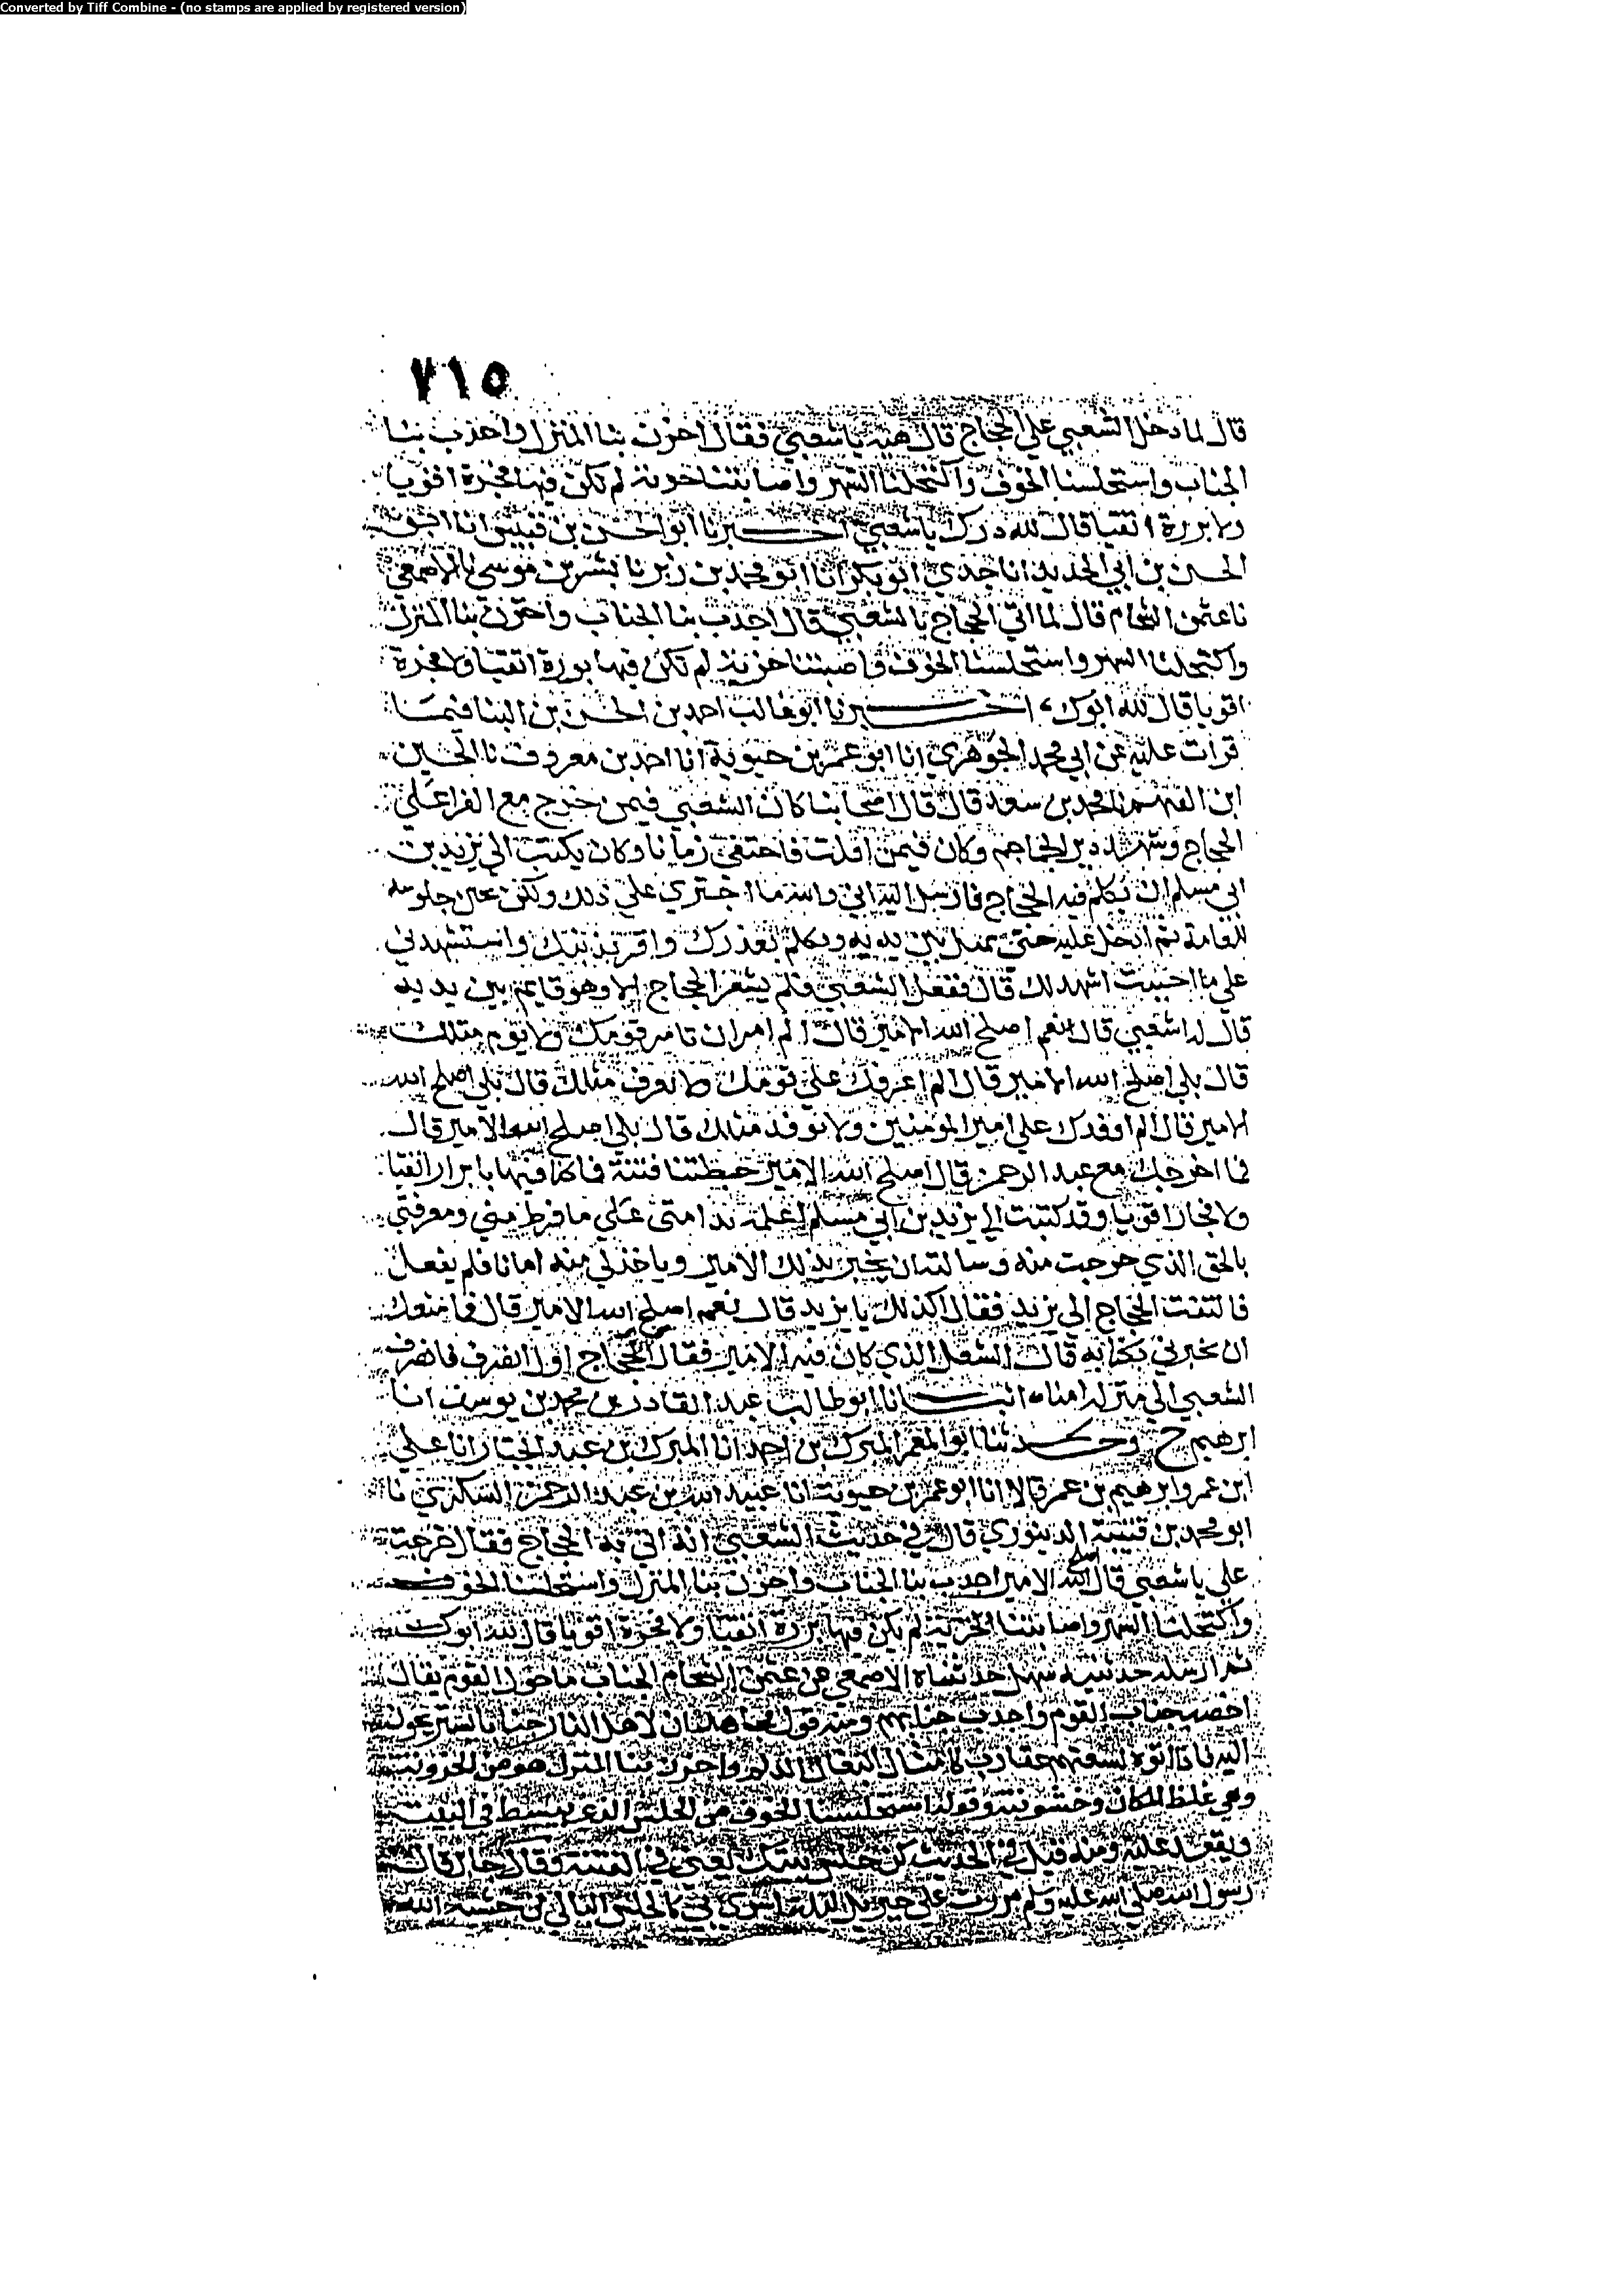 Converted by Tiff Combine - (no stamps are applied by registered version)
٧١٥
قال لما دخل الشعبي على الحجاج قال هيه يا شعبي فقال احزن بنا المنزل واجدب بنا
الجناب واستحلسنا الخوف واكتحلنا السهر واصابتنا خزية لم تكن فيها فجرة اقويا
ولا بررة اتقيا قال لله درك يا شعبي اخبرنا ابو الحسن بن قبيس انا ابو
الحسن بن ابي الحديد انا جدي ابو بكر انا ابو محمد بن زبر نا بشر بن موسى نا الاصمعي
نا عثمن الشحام قال لما اتي الحجاج بالشعبي قال اجدب بنا الجناب واحزن بنا المنزل
واكتحلنا السهر واستحلسنا الخوف فاصبتنا خزية لم تكن فيها بررة اتقيا ولا فجرة
اقويا قال لله ابوك، اخبرنا ابو غالب احمد بن الحسن بن البنا فيما
قرات عليه عن ابي محمد الجوهري انا ابو عمر بن حيوية انا احمد بن معروف نا الحسين
ابن الفهم نا محمد بن سعد قال قال اصحابنا كان الشعبي فيمن خرج مع القرا على
الحجاج وشهد دير الجماجم وكان فيمن افلت فاختفى زمانا وكان يكتب الى يزيد بن
ابي مسلم ان يكلم فيه الحجاج فارسل اليه اني والله ما اجتري على ذلك ولكن تحين جلوسه
للعامة ثم ادخل عليه حتى تمثل بين يديه وتكلم بعذرك واقر بذنبك واستشهدني
على ما احببت اشهد لك قال ففعل الشعبي فلم يشعر الحجاج الا وهو قايم بين يديه
قال له اشعبي قال نعم اصلح الله الامير قال الم امر ان تامر قومك ولا يوم مثلك
قال بلى اصلح الله الامير قال الم اعرفك على قومك ولا تعرف مثلك قال بلى اصلح الله
الامير قال الم اوفدك على امير المومنين ولا توفد مثلك قال بلى اصلح الله الامير قال
فما اخرجك مع عبد الرحمن قال اصلح الله الامير خبطتنا فتنة فما كنا فيها بابرار اتقيا
ولا فجار اقويا وقد كتبت الى يزيد بن ابي مسلم اعلمه ندامتي على ما فرط مني ومعرفتي
بالحق الذي خرجت منه وسالته ان يخبر بذلك الامير وياخذ لي منه امانا فلم يفعل
فالتفت الحجاج الى يزيد فقال اكذلك يا يزيد قال نعم اصلح الله الامير قال فما منعك
ان تخبرني بكتابه قال الشغل الذي كان فيه الامير فقال الحجاج انصرف فانصرف
الشعبي الى منزله امنا، انبانا ابو طالب عبد القادر بن محمد بن يوسف انا
ابرهيم ح وحدثنا ابو المعمر المبرك بن احمد انا المبرك بن عبد الجبار انا علي
ابن عمر وابرهيم بن عمر قالا انا ابو عمر بن حيوية انا عبيد الله بن عبد الرحمن السكري نا
ابو محمد بن قتيبة الدينوري قال في حديث الشعبي انه اتي به الحجاج فقال خرجت
علي يا شعبي قال اصلح الله الامير اجدب بنا الجناب واحزن بنا المنزل واستحلسنا الخوف
واكتحلنا السهر واصابتنا خزية لم يكن فيها بررة اتقيا ولا فجرة اقويا قال لله ابوك
ثم ارسله حدثنيه سهل حدثناه الاصمعي عن عثمن الشحام الجناب ما حول القوم يقال
اخصب جناب القوم واجدب جنابهم ومنه قول مجاهد ان لاهل النار جنابا يستريحون
اليه فاذا اتوه لسعتهم عقارب كامثال البغال الدلم واحزن بنا المنزل هو من الحزونة
وهي غلظ المكان وخشونته وقوله استحلسنا الخوف من الحلس الذي يبسط في البيت
ويقعد عليه ومنه قيل في الحديث كن حلس بيتك يعني في الفتنة وقال جابر قال
رسول الله صلى الله عليه وسلم مررت على جبريل ليلة اسري بي كالحلس البالي من خشية الله